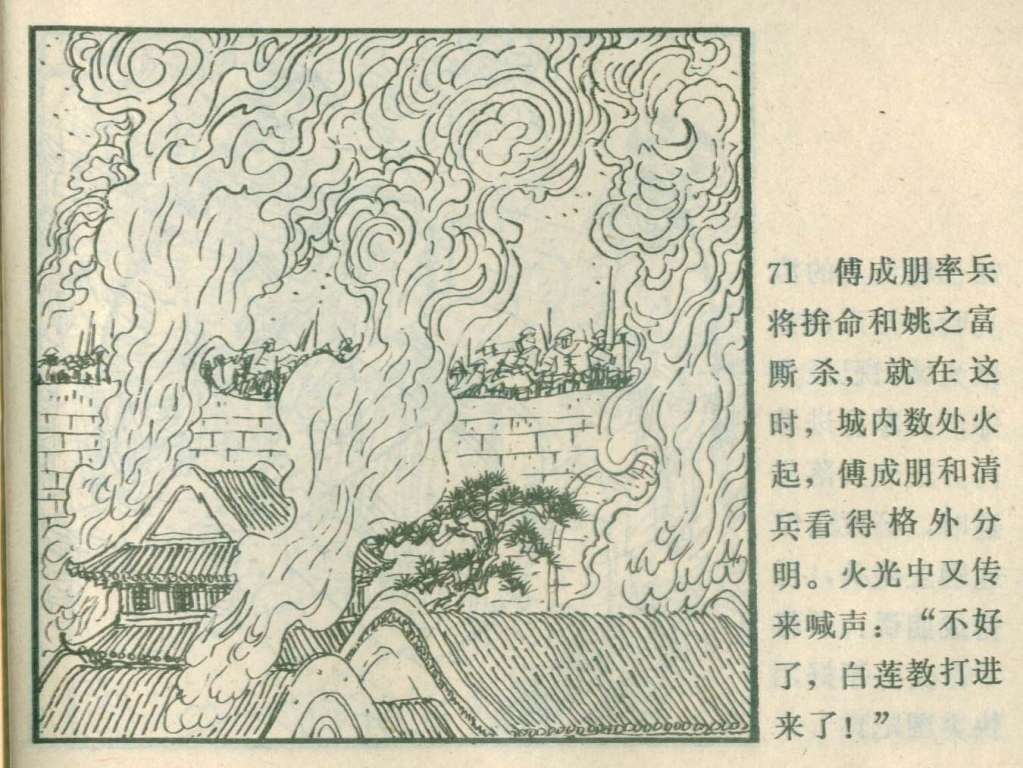 71 傅成朋率兵
将拚命和姚之富
厮杀，就在这
时，城内数处火
起，傅成朋和清
兵看得格外分
明。火光中又传
来喊声：“不好
了，白莲教打进
来了！”